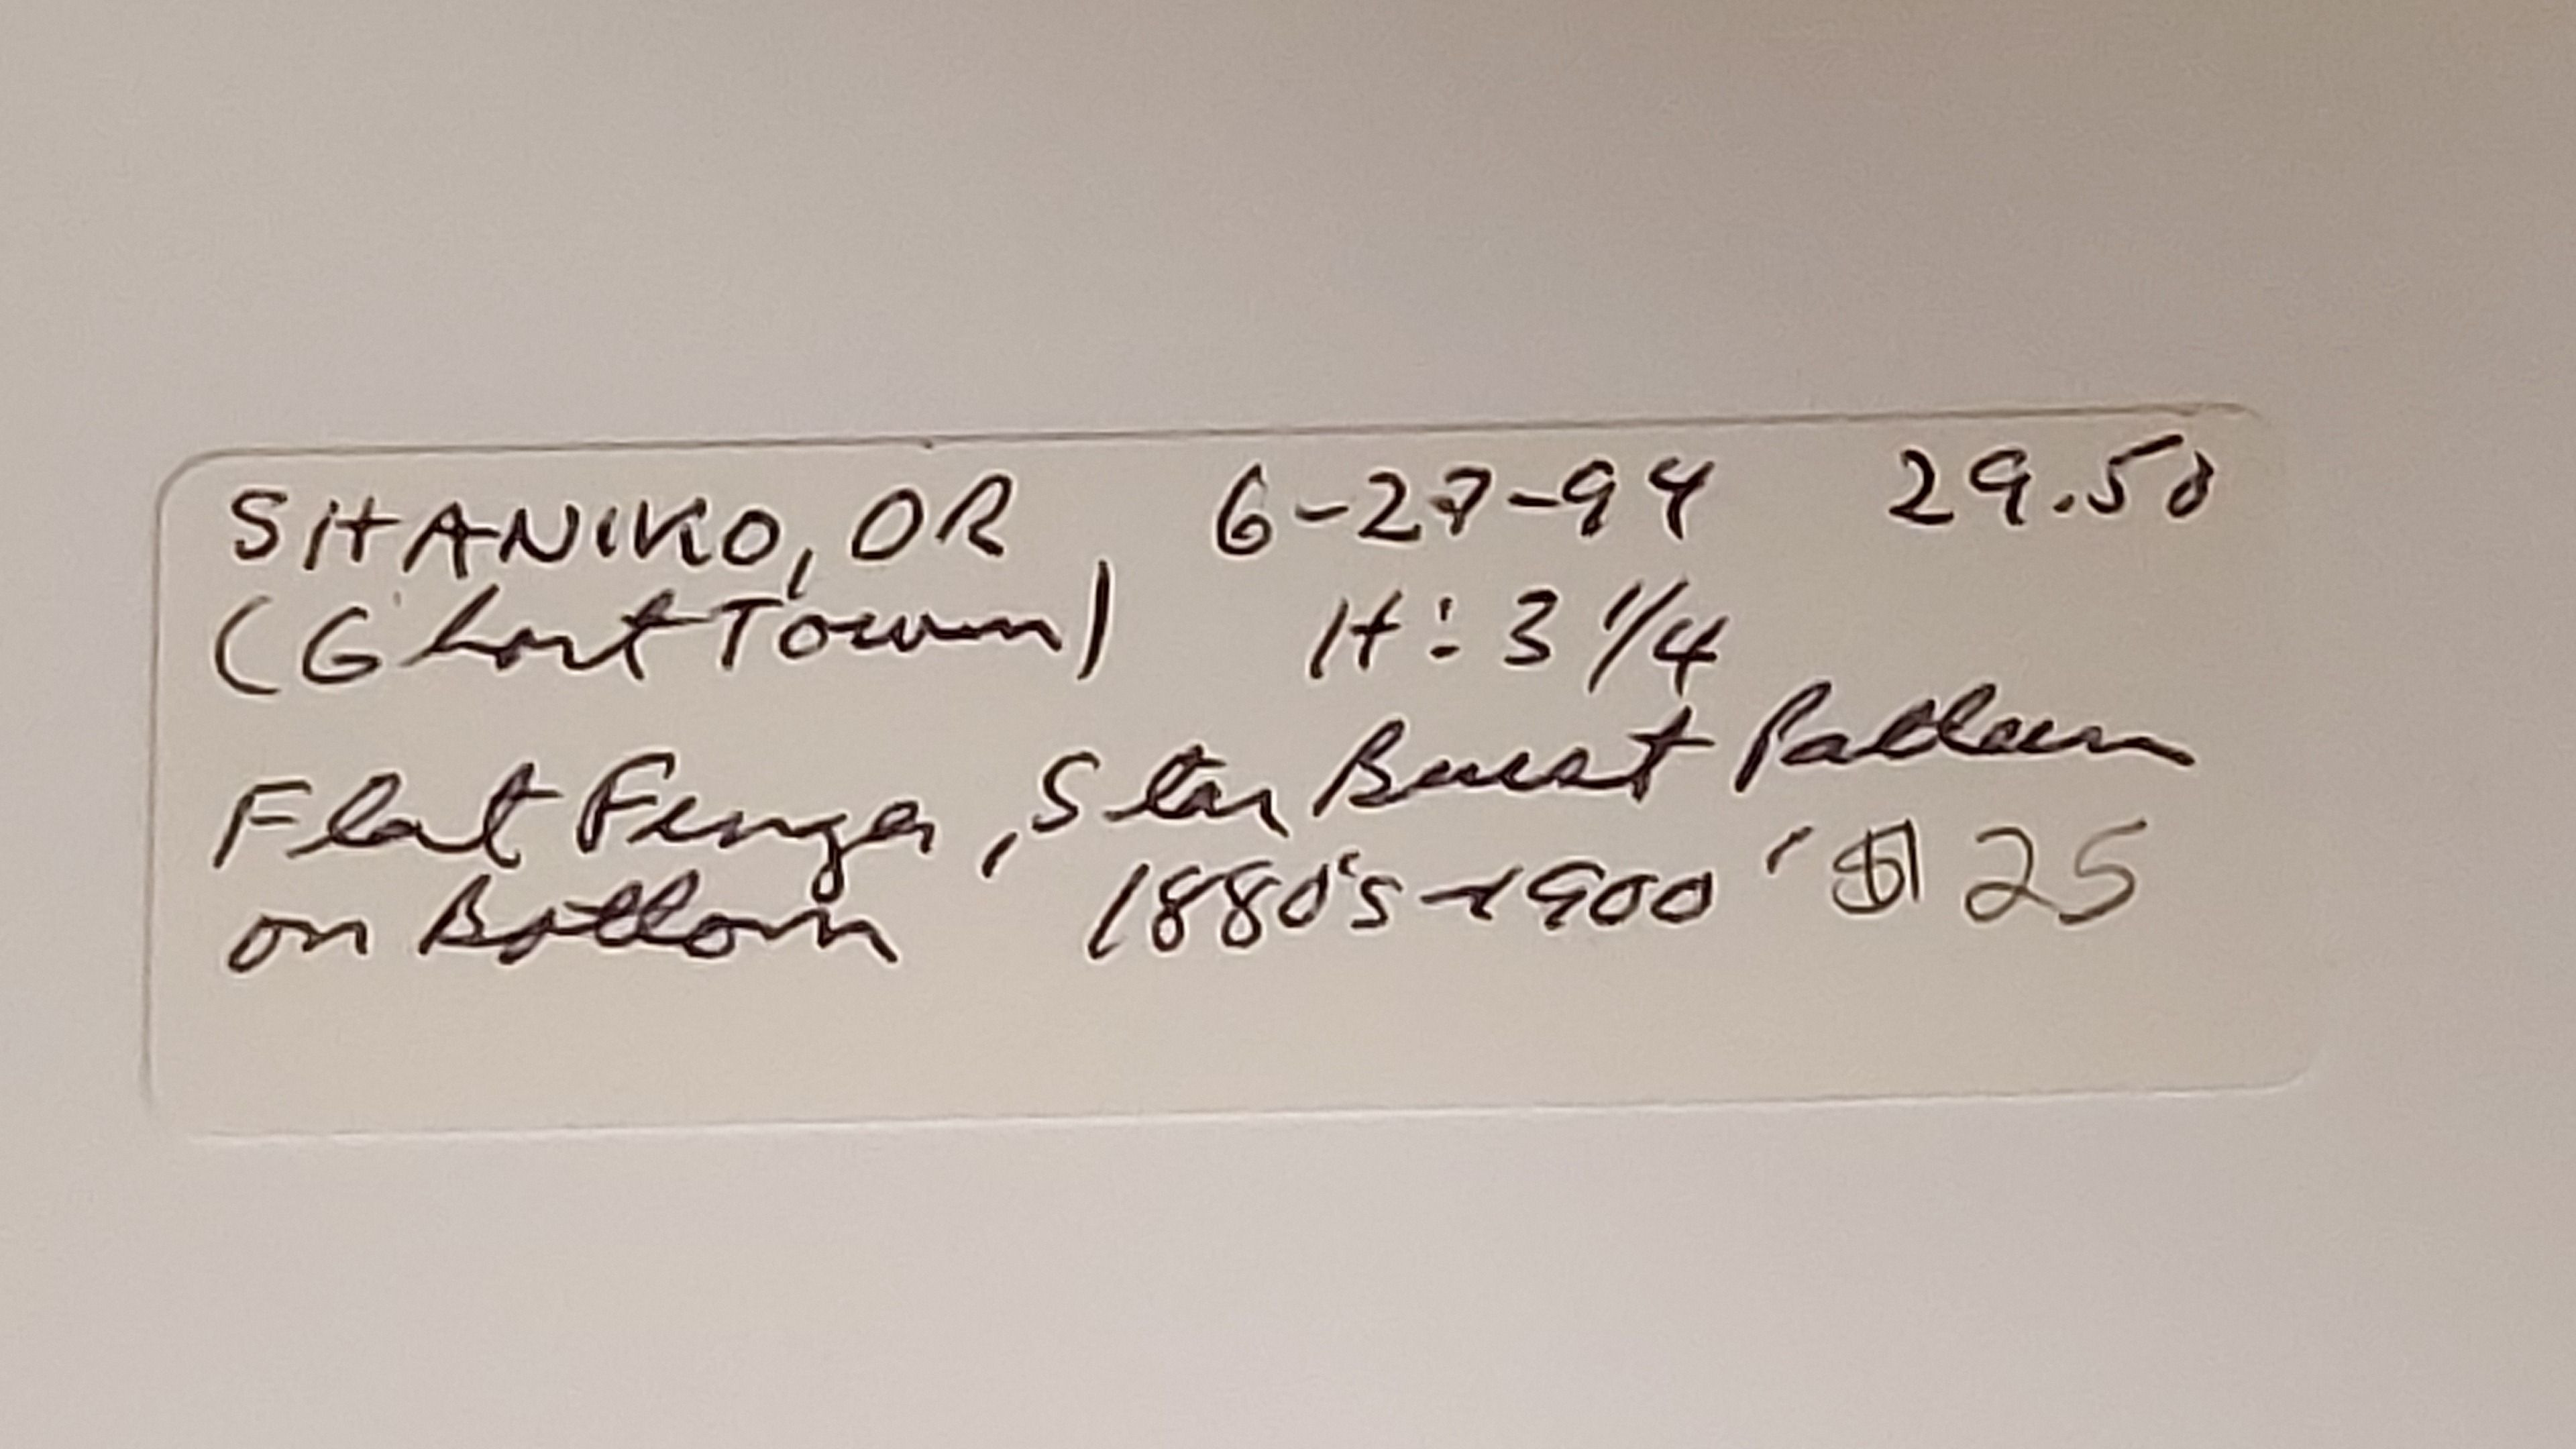 SHANIKO, OR 6-27-94 29.50
(Ghost Town) H: 3 1/4
Flat Finger, Star Burst Pattern
on Bottom 1880's-1900' $ 25